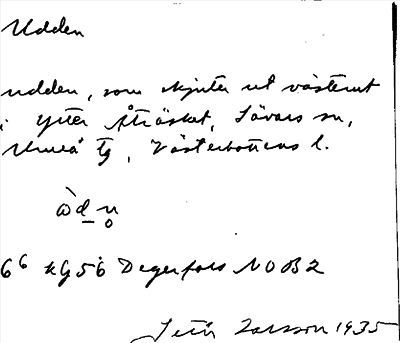 Udden
udden, som skjuter ut västerut
i Yttre Åträsket, Sävars sn,
Umeå tg, Västerbottens l.
òd̲n̥
6⁶ kg 56 Degerfors NO B2
Larsson 1935